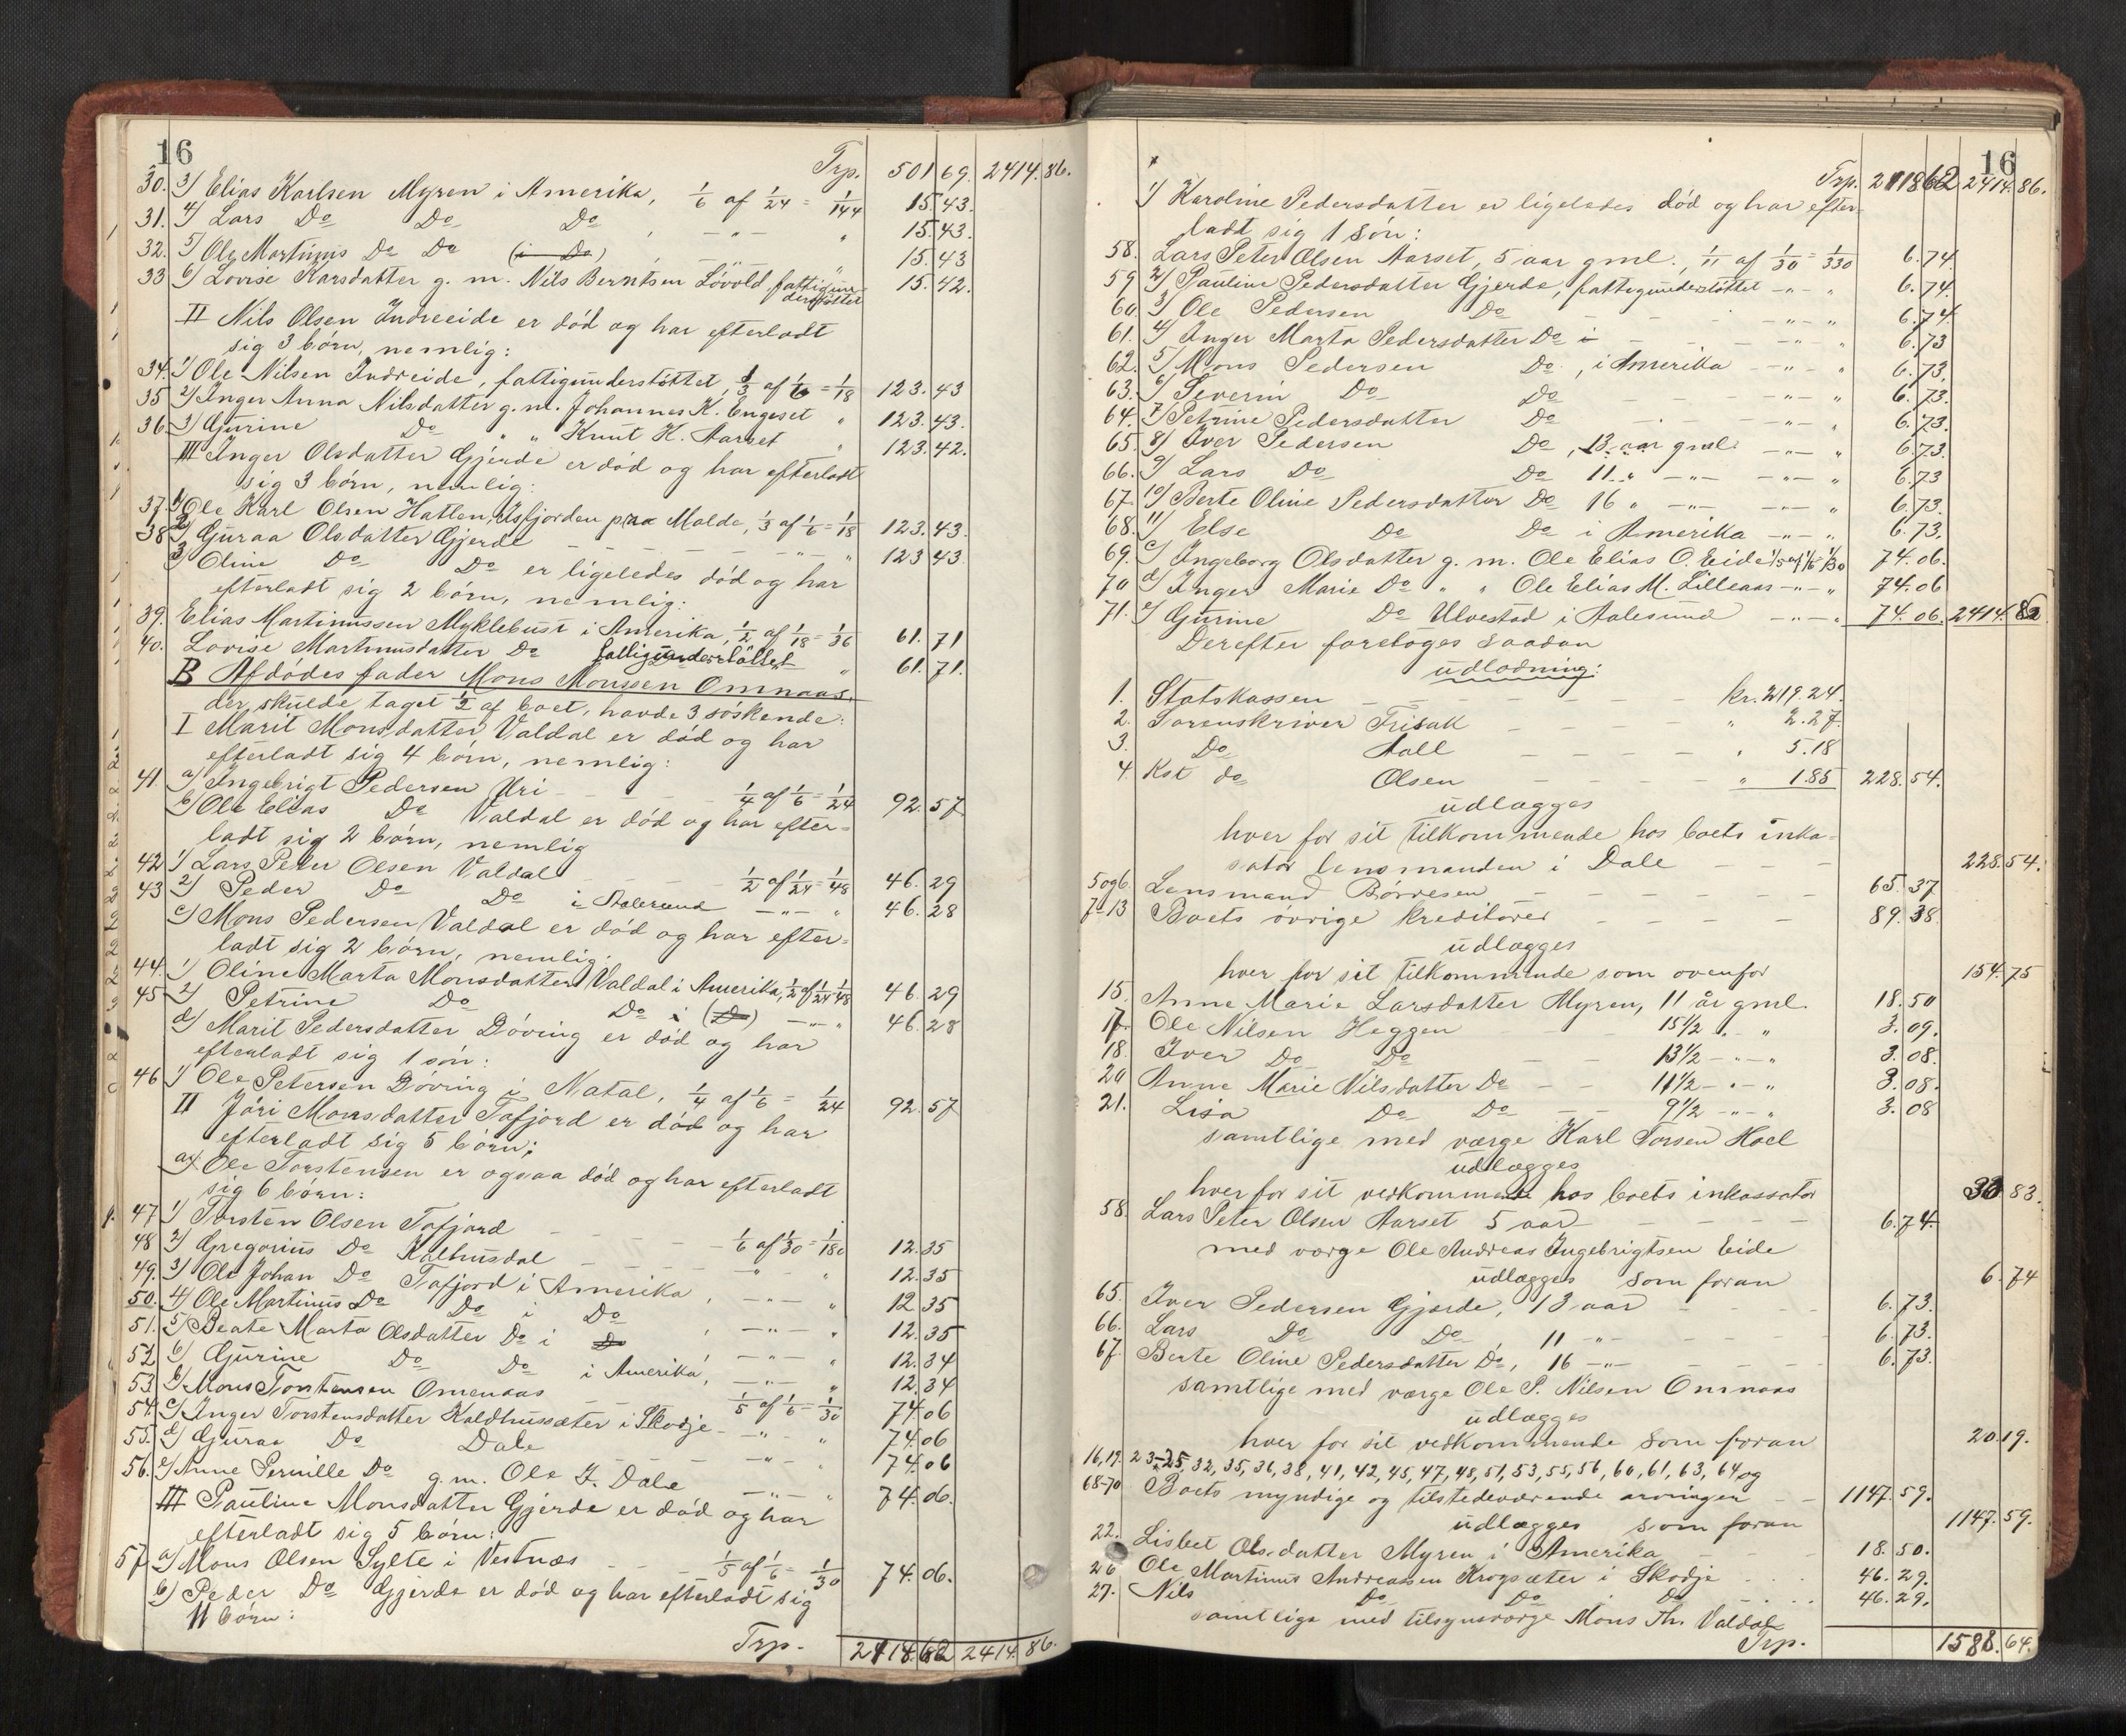 16
Trp. 501 69. 2414.86.
30. 3) Elias Karlsen Myren i Amerika, 1/6 af 1/24 = 1/144 15.43.
31. 4) Lars Do Do Do , - " - " 15.43.
32. 5) Ole Martinus Do Do (i Do) - " - " 15.43
33 6) Lovise Karsdatter g. m. Nils Berntsen Lövold fattigun- 15.42.
derstöttet
II Nils Olsen Indreeide er död og har efterladt
sig 3 börn, nemlig:
34. 1) Ole Nilsen Indreide, fattigunderstöttet, 1/3 af 1/6 = 1/18 123.43
35 2) Inger Anna Nilsdatter g. m. Johannes K. Engeset " 123.43.
36. 3) Gurine Do " " Knut H. Aarset " 123.42.
III Inger Olsdatter Gjerde er död og har efterladt
sig 3 börn, nemlig:
37. 1) Ole Karl Olsen Hatlen, Isfjorden paa Molde, 1/3 af 1/6 = 1/18 123.43.
38 2) Guraa Olsdatter Gjerde - - - " - " 123 43
3) Oline Do Do er ligeledes död og har
efterladt sig 2 börn, nemlig:
39. Elias Martinussen Myklebust i Amerika, 1/2 af 1/18 = 1/36 61.71
40. Lovise Martinusdatter Do fattigunderstöttet " 61.71.
B Afdödes fader Mons Monssen Omnaas,
der skulde taget 1/2 af boet, havde 3 söskende:
I Marit Monsdatter Valdal er död og har
efterladt sig 4 börn, nemlig:
41. a) Ingebrigt Pedersen Uri - - - 1/4 af 1/6 = 1/24 92.57
b) Ole Elias Do Valdal er död og har efter-
ladt sig 2 börn, nemlig
42 1) Lars Peter Olsen Valdal - - 1/2 af 1/24 = 1/48 46.29
43 2) Peder Do Do i Aalesund - " - " 46.28
c) Mons Pedersen Valdal er död og har efter-
ladt sig 2 börn, nemlig:
44. 1) Oline Marta Monsdatter Valdal i Amerika, 1/2 af 1/24 = 1/48 46.29
45 2) Petrine Do Do i (Do) - " - " 46.28
d) Marit Pedersdatter Döving er död og har
efterladt sig 1 sön:
46 1) Ole Petersen Döving i Natal, 1/4 af 1/6 = 1/24 92.57
II Jöri Monsdatter Tafjord er död og har
efterladt sig 5 börn;
a) Ole Torstensen er ogsaa död og har efterladt
sig 6 börn:
47 1) Torsten Olsen Tafjord - - 1/6 af 1/30 = 1/180 12.35
48 2) Gregorius Do Kalhusdal - - " - " 12.35
49. 3) Ole Johan Do Tafjord i Amerika , - " - " 12.35
50. 4) Ole Martinus Do Do i Do , - " - " 12.35
51. 5) Beate Marta Olsdatter Do i Do - " - " 12.34
52 6) Gurine Do Do i Amerika, - " - " 12.34
53. b) Mons Torstensen Omenaas - - 1/5 af 1/6 = 1/30 74.06
54. c) Inger Torstensdatter Kaldhussæter i Skodje - " - " 74.06
55. d) Guraa Do Dale - " - " 74.06
56. e) Anne Pernille Do g. m. Ole J. Dale - " - " 74.06.
III Pauline Monsdatter Gjerde er död og har
efterladt sig 5 börn:
57 a) Mons Olsen Sylte i Vestnæs - - 1/5 af 1/6 = 1/30 74.06.
b) Peder Do Gjerde er död og har efterladt sig
11 börn:
Trp. 2118.62 2414.86.
16
Trp. 2118 62 2414.86.
1) Karoline Pedersdatter er ligeledes död og har efter-
ladt sig 1 sön:
58. Lars Peter Olsen Aarset, 5 aar gml., 1/11 af 1/30 = 1/330 6.74.
59 2) Pauline Pedersdatter Gjerde, fattigunderstöttet - " - " 6.74.
60. 3) Ole Pedersen Do - - - " - " 6.74.
61. 4) Inger Marta Pedersdatter Do i - - - " - " 6.73
62. 5) Mons Pedersen Do, i Amerika - " - " 6.73.
63. 6) Severin Do Do - - " - " 6.73.
64. 7) Petrine Pedersdatter Do - - - " - " 6.73.
65. 8) Iver Pedersen Do, 13 aar gml. - " - " 6.73.
66. 9) Lars Do Do 11 " - " - - " - " 6.73
67. 10) Berte Oline Pedersdatter Do 16 " - " - - " - " 6.73.
68. 11) Else Do Do i Amerika - " - " 6.73.
69. c) Ingeborg Olsdatter g. m. Ole Elias O. Eide 1/5 af 1/6 = 1/30 74.06.
70 d) Inger Marie Do " " Ole Elias M. Lilleaas - " - " 74.06
71. e) Gurine Do Ulvestad i Aalesund - " - " 74.06. 2414.86
Derefter foretoges saadan
udlodning:
1. Statskassen - - - kr. 219.24
2. Sorenskriver Frisak - - - " 2.27
3. Do Aall - - - " 5.18
4. Kst do Olsen - - - " 1.85 228.54.
udlægges
hver for sit tilkommende hos boets inka-
sator lensmanden i Dale - - 228.54.
5 og 6. Lensmand Börresen - - - 65.37
7-13 Boets övrige kreditorer - - - 89.38
udlægges
hver for sit tilkommende som ovenfor 154.75
15. Anne Marie Larsdatter Myren, 11 år gml. 18.50
17. Ole Nilsen Heggen 15 1/2 " - " 3.09.
18. Iver Do Do - - 13 1/2 - " - " 3.08.
20 Anne Marie Nilsdatter Do - - 11 1/2 - " - " 3.08.
21. Lisa Do Do - - 9 1/2 - " - " 3.08
samtlige med værge Karl Torsen Hoel
udlægges
hver for sit vedkommende hos boets inkassator 30 83.
58. Lars Peter Olsen Aarset 5 aar - - - 6.74.
med værge Ole Andreas Ingebrigtsen Eide
udlægges som foran 6.74
65. Iver Pedersen Gjerde, 13 aar - - - 6.73.
66. Lars Do Do, 11 - " - - - 6.73.
67. Berte Oline Pedersdatter Do, 16 - " - - - 6.73.
samtlige med værge Ole P. Nilsen Omnaas
udlægges
hver for sit vedkommende som foran 20.19.
16, 19. 23-25, 32, 35, 36, 38, 41, 42, 45, 47, 48, 51, 53, 55, 56, 60, 61, 63, 64 og
68-70 Boets myndige og tilstedeværende arvinger - - 1147.59.
udlægges som foran 1147.59.
22. Lisbet Olsdatter Myren i Amerika - - 18.50.
26 Ole Martinus Andreassen Krogsæter i Skodje - - 46.29.
27. Nils Do Do Do - - 46.29.
samtlige med tilsynsværge Mons Th. Valdal
Trp. 1588.64.